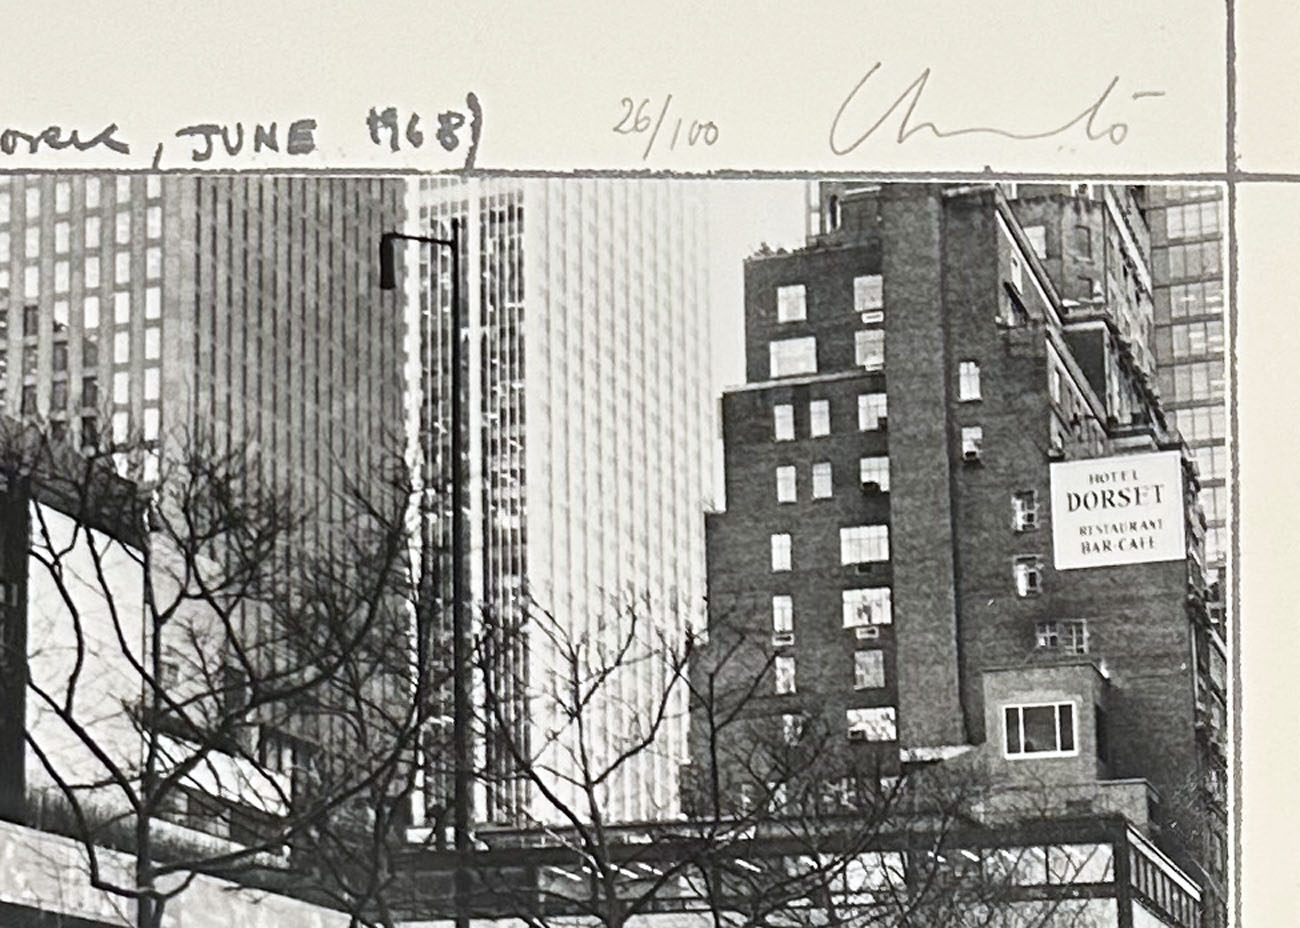 , JUNE 1968) 26/100 Christo
HOTEL
DORSET
RESTAURANT
BAR-CAFE